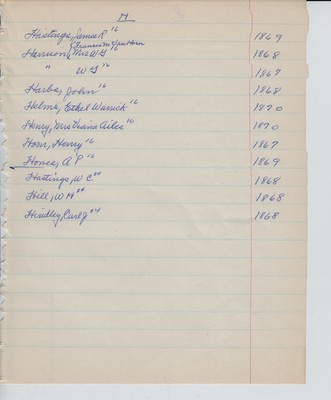 H
Hastings, James R 16 1869
Eleanor M Van Horn
Harrison, Mrs W G 16 1868
" W G 16 1867
Harbs, John 16 1868
Helms, Ethel Warrick 16 1870
Henry, Mrs Ailee 10 1870
Horn, Henry 16 1867
Hones, A P 16 1869
Hastings, W C 1868
Hill, W H 1868
Hindley, Carl J 1868